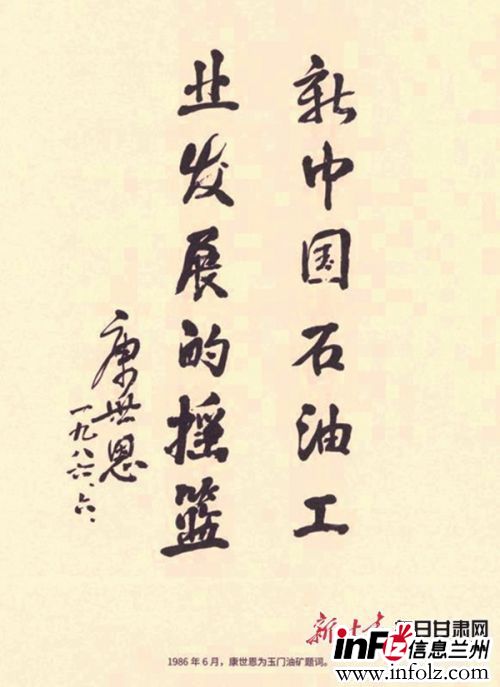 新中国石油工
业发展的摇篮
康世恩
一九八六、六、
1986 年 6 月，康世恩为玉门油矿题词。
每日甘肃网
inf信息兰州
www.infolz.com